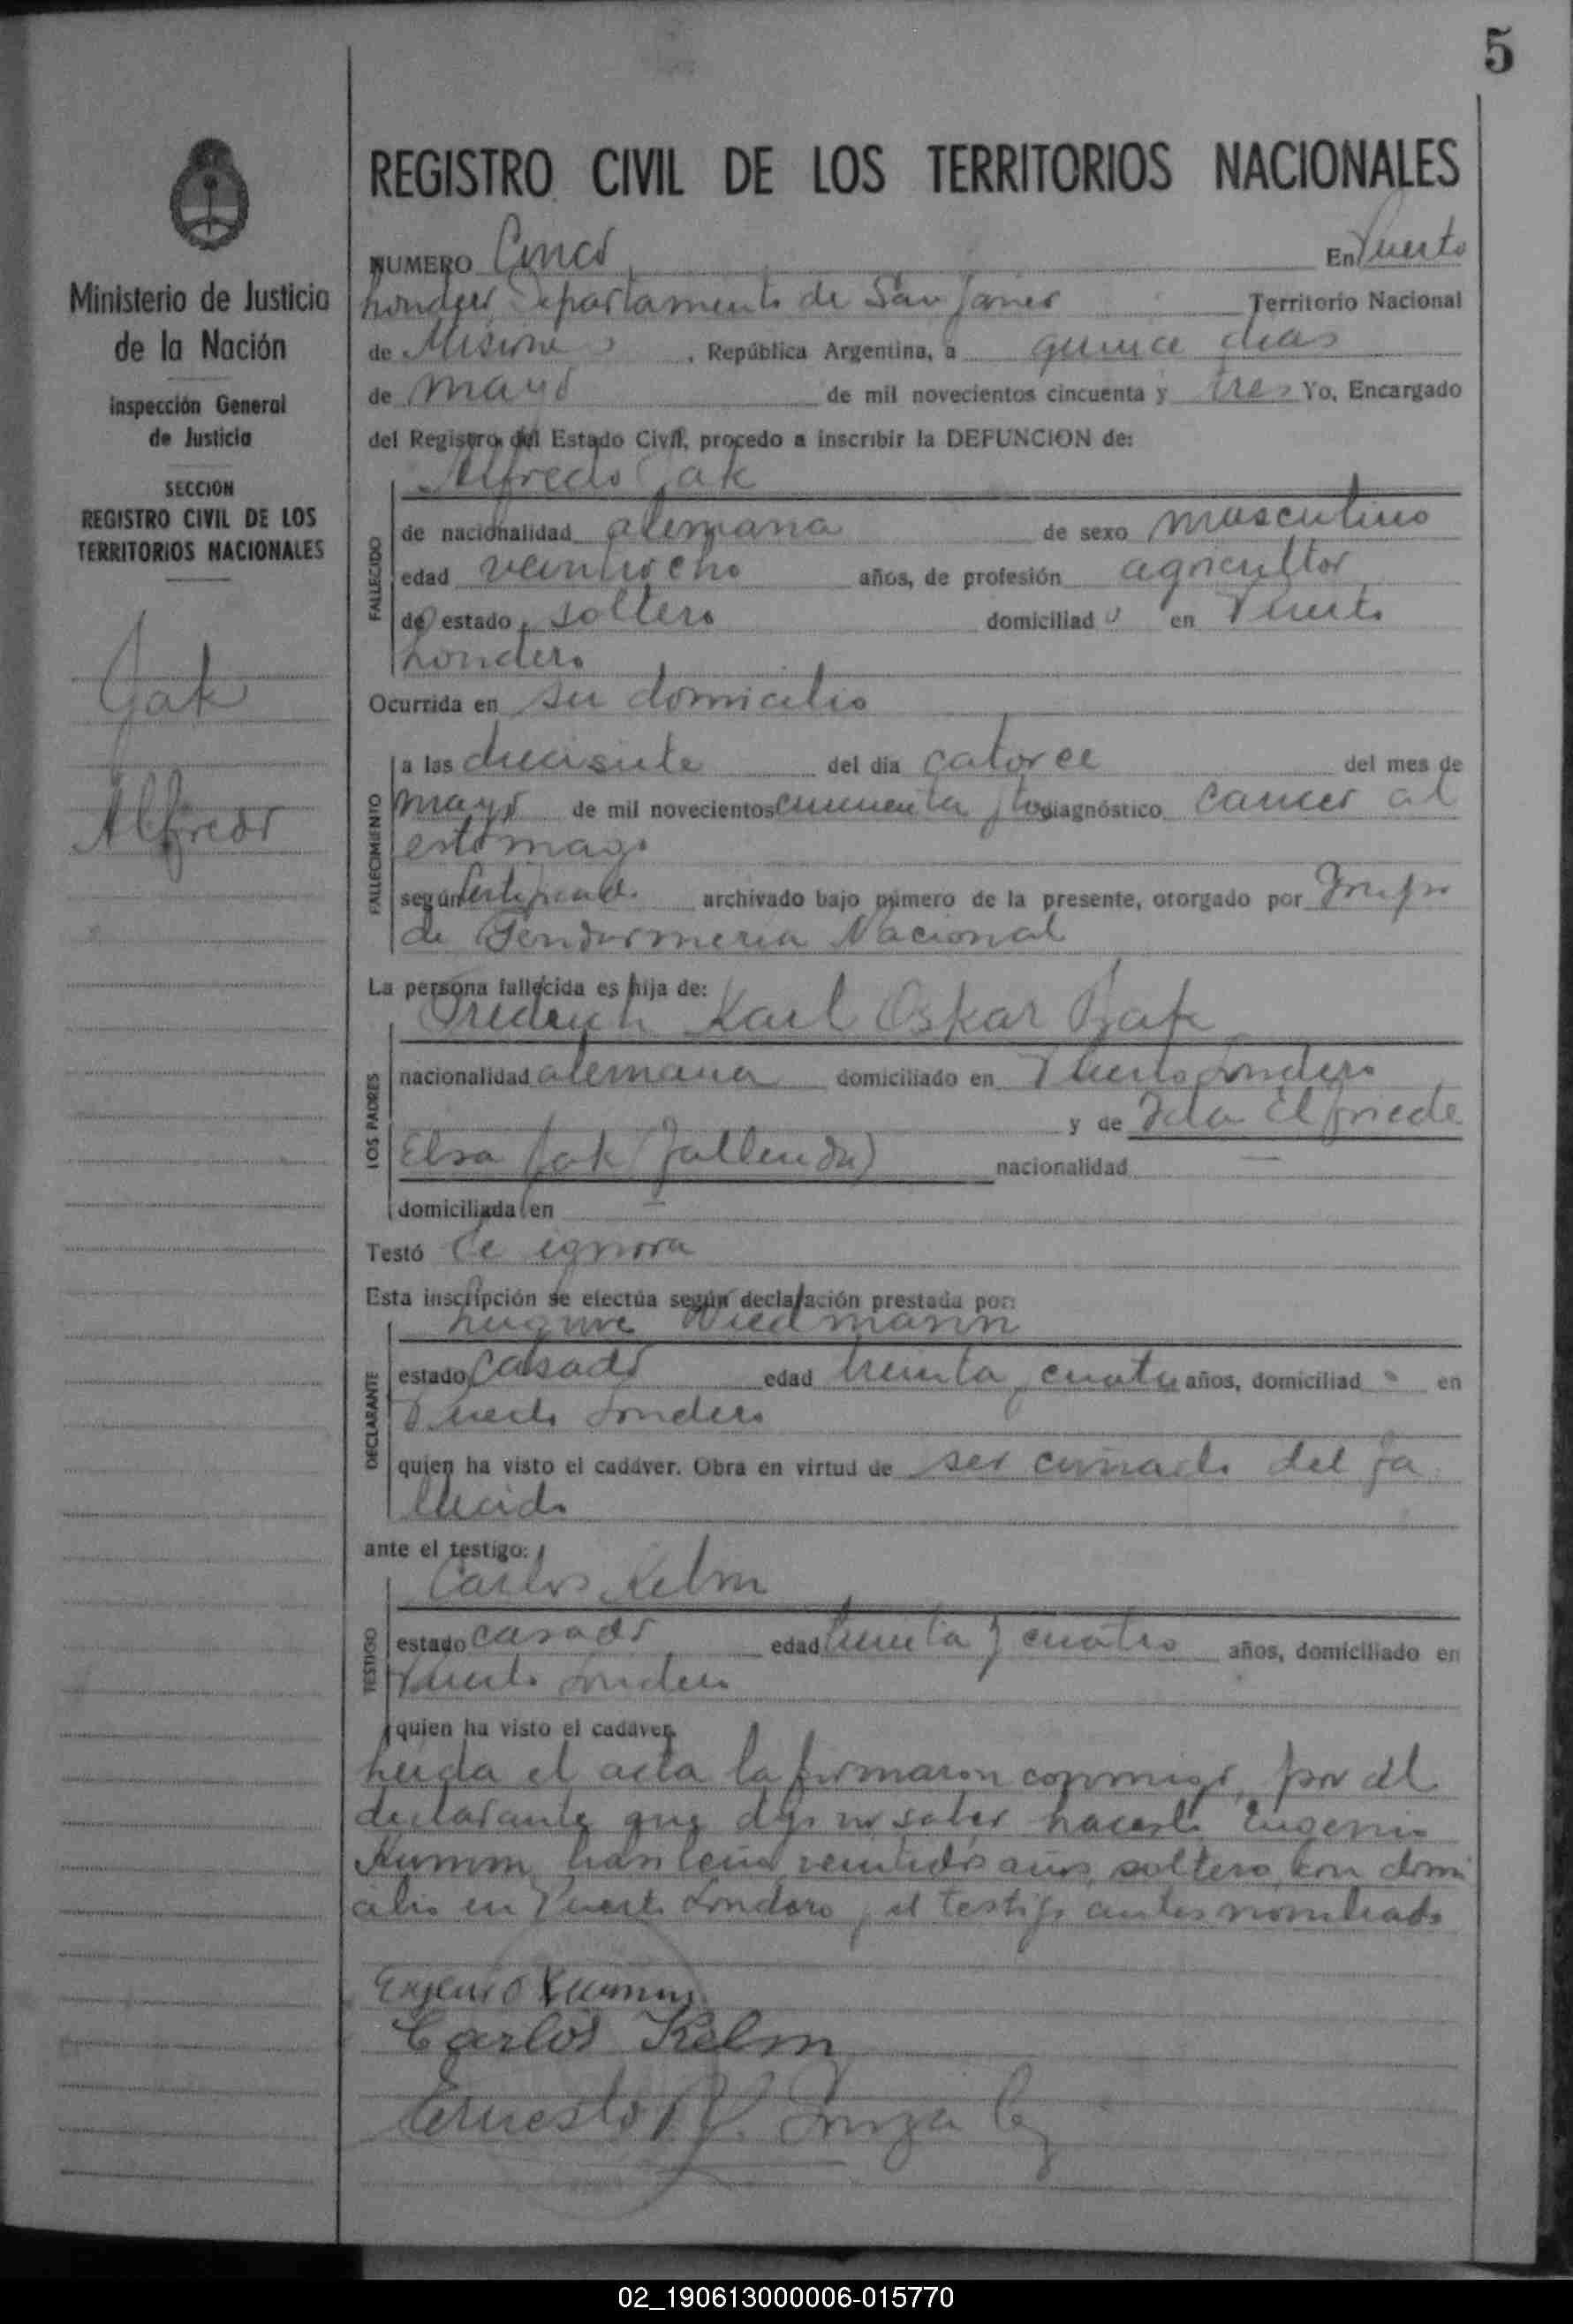 5
REGISTRO CIVIL DE LOS TERRITORIOS NACIONALES
Ministerio de Justicia
de la Nación
Inspección General
de Justicia
SECCION
REGISTRO CIVIL DE LOS
TERRITORIOS NACIONALES
Jak
Alfredo
NUMERO Cinco En Puerto
Londero Departamento de San Javier Territorio Nacional
de Misiones, República Argentina, a quince dias
de mayo de mil novecientos cincuenta y tres Yo, Encargado
del Registro del Estado Civil, procedo a inscribir la DEFUNCION de:
Alfredo Jak
FALLECIDO
de nacionalidad alemana de sexo masculino
edad veintiocho años, de profesión agricultor
de estado soltero domiciliado en Puerto
Londero
Ocurrida en su domicilio
FALLECIMIENTO
a las diecisiete del día catorce del mes de
mayo de mil novecientos cincuenta y tres diagnóstico cancer al
estomago
según certificado archivado bajo número de la presente, otorgado por
de Gendarmeria Nacional
La persona fallecida es hija de:
LOS PADRES
Friedrich Karl Oskar Jak
nacionalidad alemana domiciliado en Puerto Londero
y de Ida Elfriede
Elsa Jak (fallecida) nacionalidad —
domiciliada en —
Testó Se ignora
Esta inscripción se efectúa según declaración prestada por:
DECLARANTE
Wiedmann
estado casado edad treinta y cuatro años, domiciliado en
Puerto Londero
quien ha visto el cadáver. Obra en virtud de ser cuñado del fa
llecido
ante el testigo:
TESTIGO
Carlos Kelm
estado casado edad treinta y cuatro años, domiciliado en
Puerto Londero
quien ha visto el cadáver.
Leida el acta la firmaron conmigo, por el
declarante que dijo no saber hacerlo Eugenio
Kumm, brasileño, veintidos años, soltero, con domi
cilio en Puerto Londero y el testigo antes nombrado
Eugenio Kumm
Carlos Kelm
Ernesto González
02_190613000006-015770